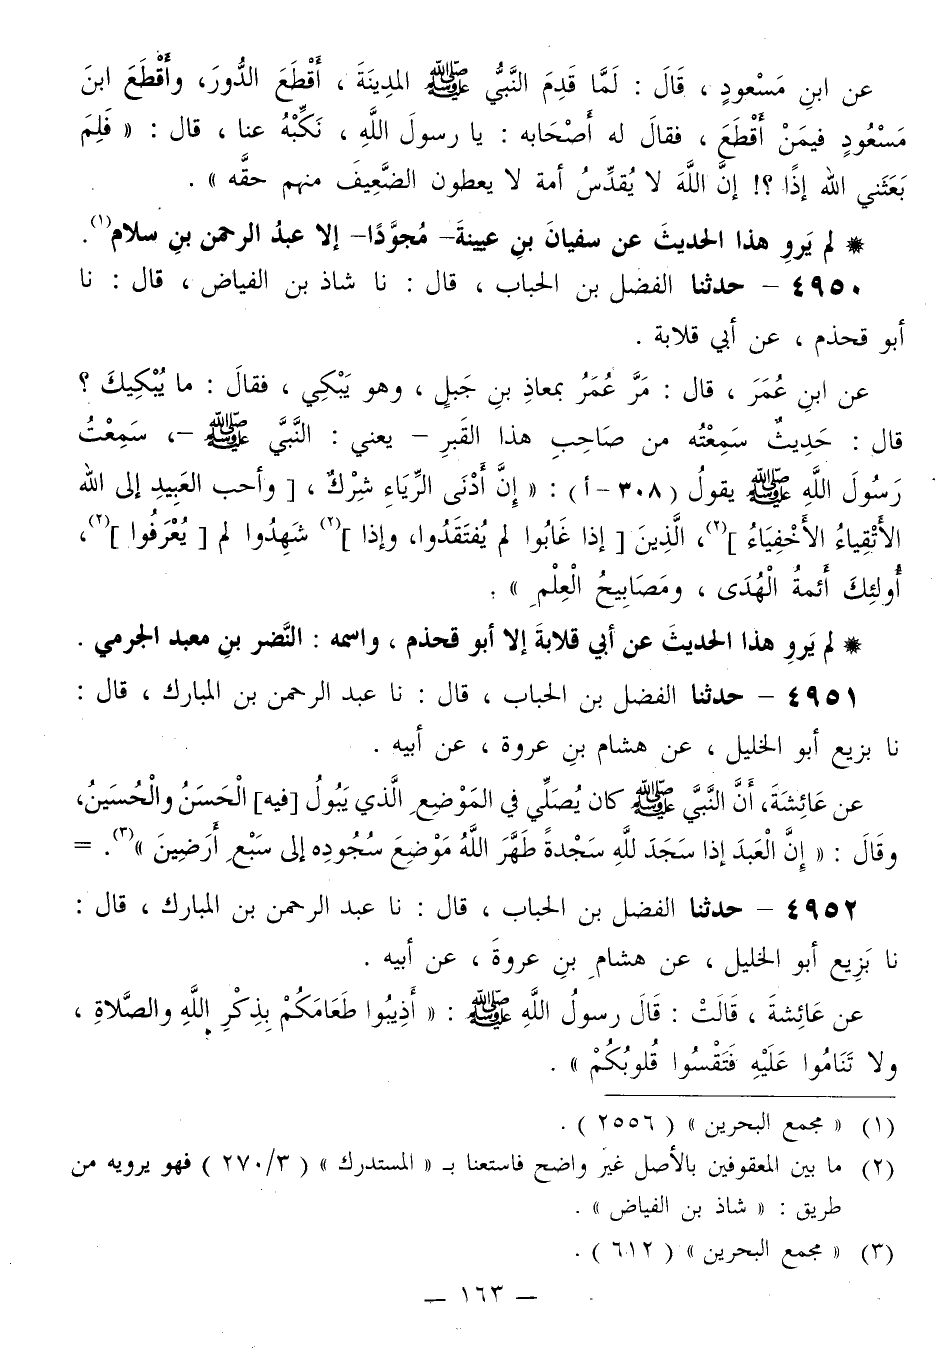 عن ابنِ مَسْعودٍ ، قَالَ : لَمَّا قَدِمَ النَّبيُّ ﷺ المدِينَةَ ، أَقْطَعَ الدُّورَ، وأَقْطَعَ ابنَ
مَسْعُودٍ فيمَنْ أَقْطَعَ ، فقالَ له أَصْحَابه : يا رسولَ اللَّهِ ، نَكِّبْهُ عنا ، قال : « فَلِمَ
بَعَثَني الله إذًا ؟! إنَّ اللَّهَ لا يُقدِّسُ أمة لا يعطون الضَّعِيفَ منهم حقَّه » .
* لم يَروِ هذا الحديثَ عن سفيانَ بنِ عيينةَ– مُجوَّدًا– إلا عبدُ الرحمن بنِ سلام(١).
٤٩٥٠ – حدثنا الفضل بن الحباب ، قال : نا شاذ بن الفياض ، قال : نا
أبو قحذم ، عن أبي قلابة .
عن ابنِ عُمَرَ ، قال : مَرَّ عُمَرُ بمعاذِ بنِ جَبلٍ ، وهو يَبْكِي ، فقالَ : ما يُبْكِيكَ ؟
قال : حَدِيثٌ سَمِعْتُه من صَاحِبِ هذا القَبرِ – يعني : النَّبيَّ ﷺ –، سَمِعْتُ
رَسُولَ اللَّهِ ﷺ يقولُ (٣٠٨–أ) : « إِنَّ أَدْنَى الرِّيَاءِ شِرْكٌ ، [ وأحب العَبِيدِ إلى الله
الأَتْقِياءُ الأَخْفِيَاءُ ](٢)، الَّذِينَ [ إذا غَابُوا لم يُفتَقَدُوا، وإذا ](٢) شَهِدُوا لم [ يُعْرَفُوا ](٢)،
أُولئِكَ أَئمةُ الْهُدَى ، ومَصَابِيحُ الْعِلْمِ » .
* لم يَروِ هذا الحديثَ عن أبي قلابةَ إلا أبو قحذم ، واسمه : النَّضر بنِ معبد الجرمي .
٤٩٥١ – حدثنا الفضل بن الحباب ، قال : نا عبد الرحمن بن المبارك ، قال :
نا بزيع أبو الخليل ، عن هشام بنِ عروة ، عن أبيه .
عن عَائِشَةَ، أَنَّ النَّبيَّ ﷺ كان يُصَلِّي في المَوْضِعِ الَّذي يَبُولُ [فيه] الْحَسَنُ والْحُسَينُ،
وقَالَ : « إنَّ الْعَبدَ إذا سَجَدَ للَّهِ سَجْدةً طَهَّرَ اللَّهُ مَوْضِعَ سُجُودِه إلى سَبْعِ أَرَضِينَ »(٣). =
٤٩٥٢ – حدثنا الفضل بن الحباب ، قال : نا عبد الرحمن بن المبارك ، قال :
نا بَزِيع أبو الخليل ، عن هشامِ بنِ عروةَ ، عن أبيه .
عن عَائِشةَ ، قَالَتْ : قَالَ رسولُ اللَّهِ ﷺ : « أَذِيبُوا طَعَامَكُمْ بِذِكْرِ اللَّهِ والصَّلاةِ ،
ولا تَنَامُوا عَلَيْهِ فَتَقْسُوا قُلوبُكُمْ » .
(١) « مجمع البحرين » ( ٢٥٥٦ ) .
(٢) ما بين المعقوفين بالأصل غير واضح فاستعنا بـ « المستدرك » ( ٣/ ٢٧٠ ) فهو يرويه من
طريق : « شاذ بن الفياض » .
(٣) « مجمع البحرين » ( ٦١٢ ) .
– ١٦٣ –